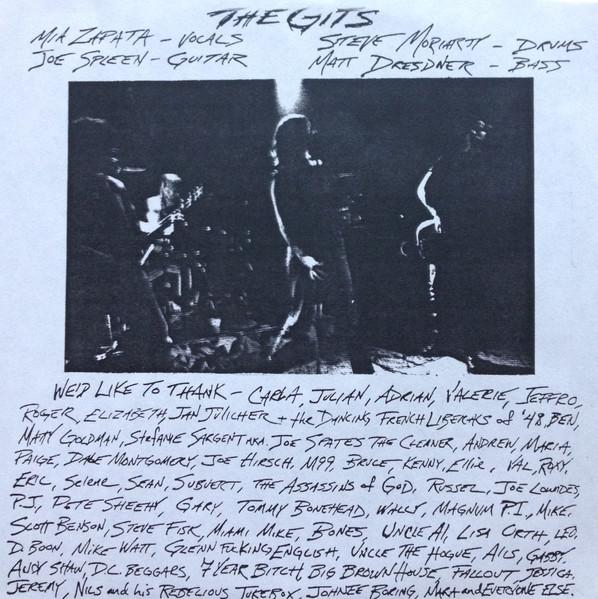 THE GITS
MIA ZAPATA - VOCALS STEVE MORIARTY - DRUMS
JOE SPLEEN - GUITAR MATT DRESDNER - BASS
WE'D LIKE TO THANK - CARLA, JULIAN, ADRIAN, VALERIE, JEFFRO,
ROGER, ELIZABETH, JAN JÜLICHER + the DANCING FRENCH LIBERALS of '48, BEN,
MATT GOLDMAN, STEFANIE SARGENT AKA. JOE STATES THE CLEANER, ANDREW, MARIA,
PAIGE, DAVE MONTGOMERY, JOE HIRSCH, M99, BRUCE, KENNY, Ellie, VAL, ROXY,
ERIC, Selene, SEAN, SUBVERT, THE ASSASSINS of GOD, RUSSEL, JOE LOWNDES,
P.J, PETE SHEEHY, GARY, TOMMY BONEHEAD, WALLY, MAGNUM P.I., MIKE,
SCOTT BENSON, STEVE FISK, MIAMI MIKE, BONES, UNCLE Al, LISA ORTH, LEO,
D. BOON, MIKE WATT, GLENN FUCKING ENGLISH, UNCLE THE HOGUE, AILS, GABBY,
AUDY SHAW, D.C. BEGGARS, 7 YEAR BITCH, BIG BROWN HOUSE, FALLOUT, JESSICA,
JEREMY, NILS and his REBELIOUS JUKEBOX, JOHNEE BORING, NARA and EVERYONE ELSE.